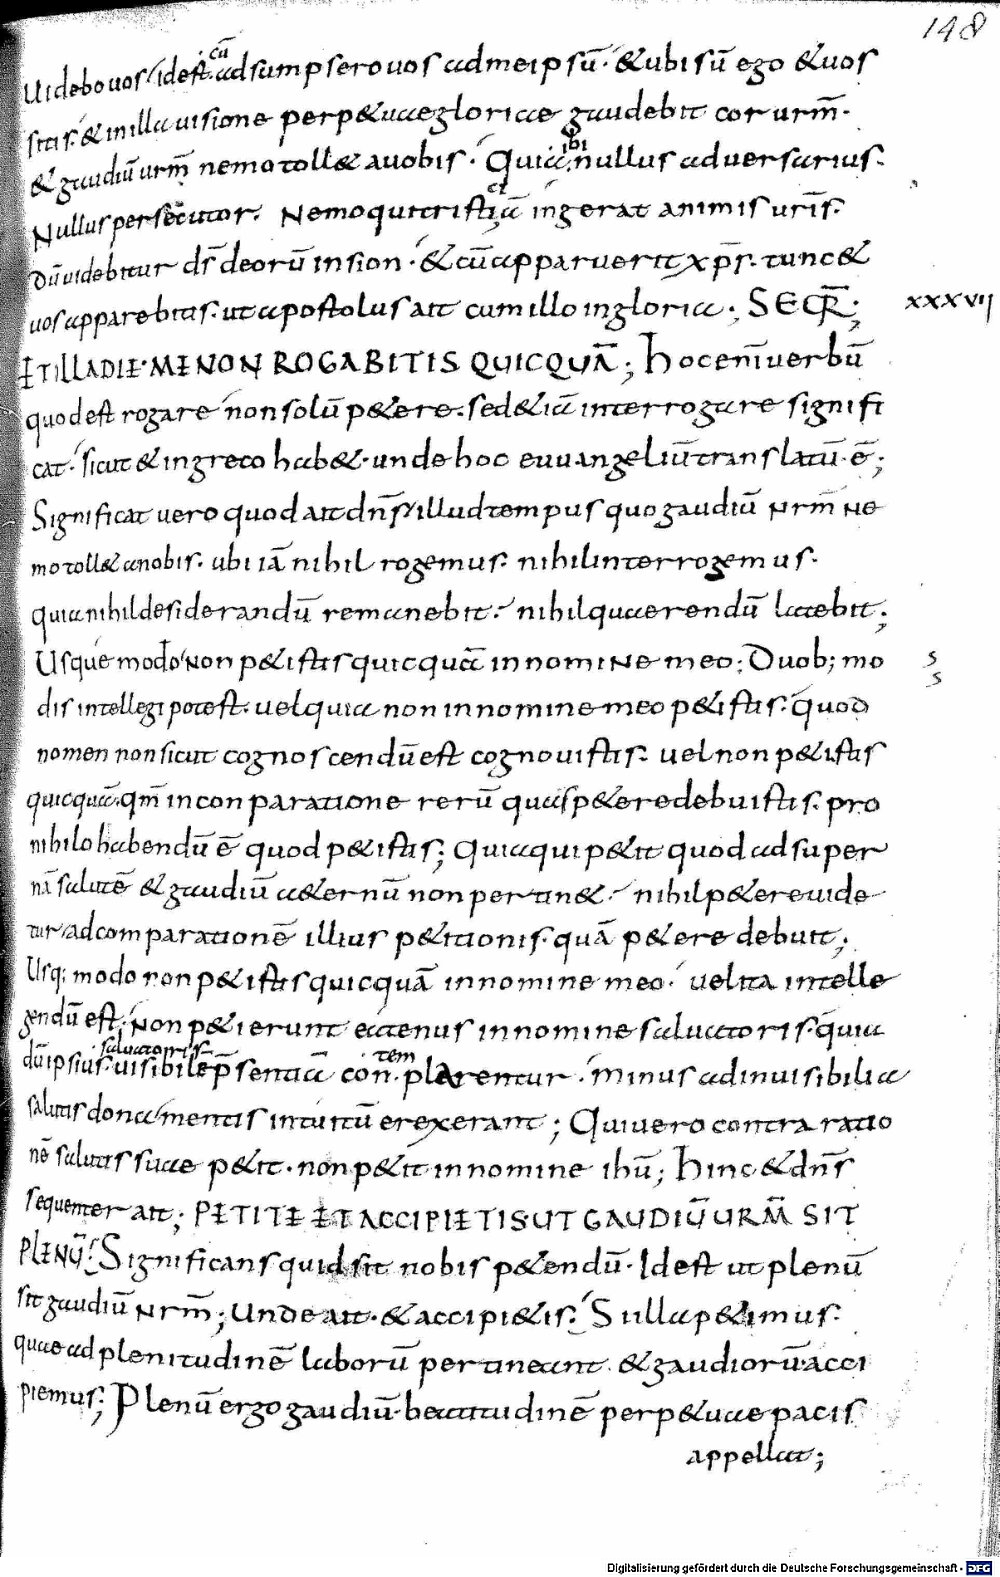 148
Uidebo uos. idest. cū adsumpsero uos ad meipsū. & ubi sū ego & uos
sitis. & in illa uisione perp&uae gloriae gaudebit cor urm̄.
& gaudiū urm̄ nemo toll& a uobis. Quia ibi nullus aduersarius.
Nullus persecutor. Nemo qui tristitiā ingerat animis uris̄.
Dū uidebitur ds̄ deorū in sion. & cū apparuerit xps̄. tunc &
uos apparebitis. ut apostolus ait cum illo in gloria; SECR̄;
xxxvii
ET ILLA DIE. ME NON ROGABITIS QUICQUĀ; Hoc enī uerbū
quod est rogare non solū p&ere. sed &iā interrogare signifi
cat. sicut & in greco hab&. unde hoc euuangeliū translatū. ē;
Significat uero quod ait dn̄s illud tempus quo gaudiū nrm̄ ne
mo toll& a nobis. ubi iā nihil rogemus. nihil interrogemus.
quia nihil desiderandū remanebit. nihil quaerendū latebit;
Usque modo non p&istis quicquā in nomine meo; Duob; mo
s
s
dis intellegi potest. uel quia non in nomine meo p&istis. quod
nomen non sicut cognoscendū est cognouistis. uel non p&istis
quicquā. qm̄ in conparatione rerū quas p&ere debuistis. pro
nihilo habendū ē quod p&istis; Quia qui p&it quod ad super
nā salutē & gaudiū a&ernū non pertin&. nihil p&ere uide
tur ad comparationē illius p&itionis. quā p&ere debuit;
Usq; modo non p&istis quicquā in nomine meo. uel ita intelle
gendū est. Non p&ierunt eatenus in nomine saluatoris. quia
dū ipsius saluatoris uisibilē p̄sentiā contemplarentur. minus ad inuisibilia
salutis dona mentis intuitū erexerant; Qui uero contra ratio
nē salutis suae p&it. non p&it in nomine ihū; Hinc & dn̄s
sequenter ait; PETITE ET ACCIPIETIS. UT GAUDIŪ URM̄ SIT
PLENŪ. Significans quid sit nobis p&endū. Id est ut plenū
sit gaudiū nrm̄; Unde ait. & accipi&is. Si illa p&imus.
quae ad plenitudinē laborū pertineant. & gaudiorū. acci
piemus; Plenū ergo gaudiū. beatitudinē perp&uae pacis
appellat;
Digitalisierung gefördert durch die Deutsche Forschungsgemeinschaft - DFG